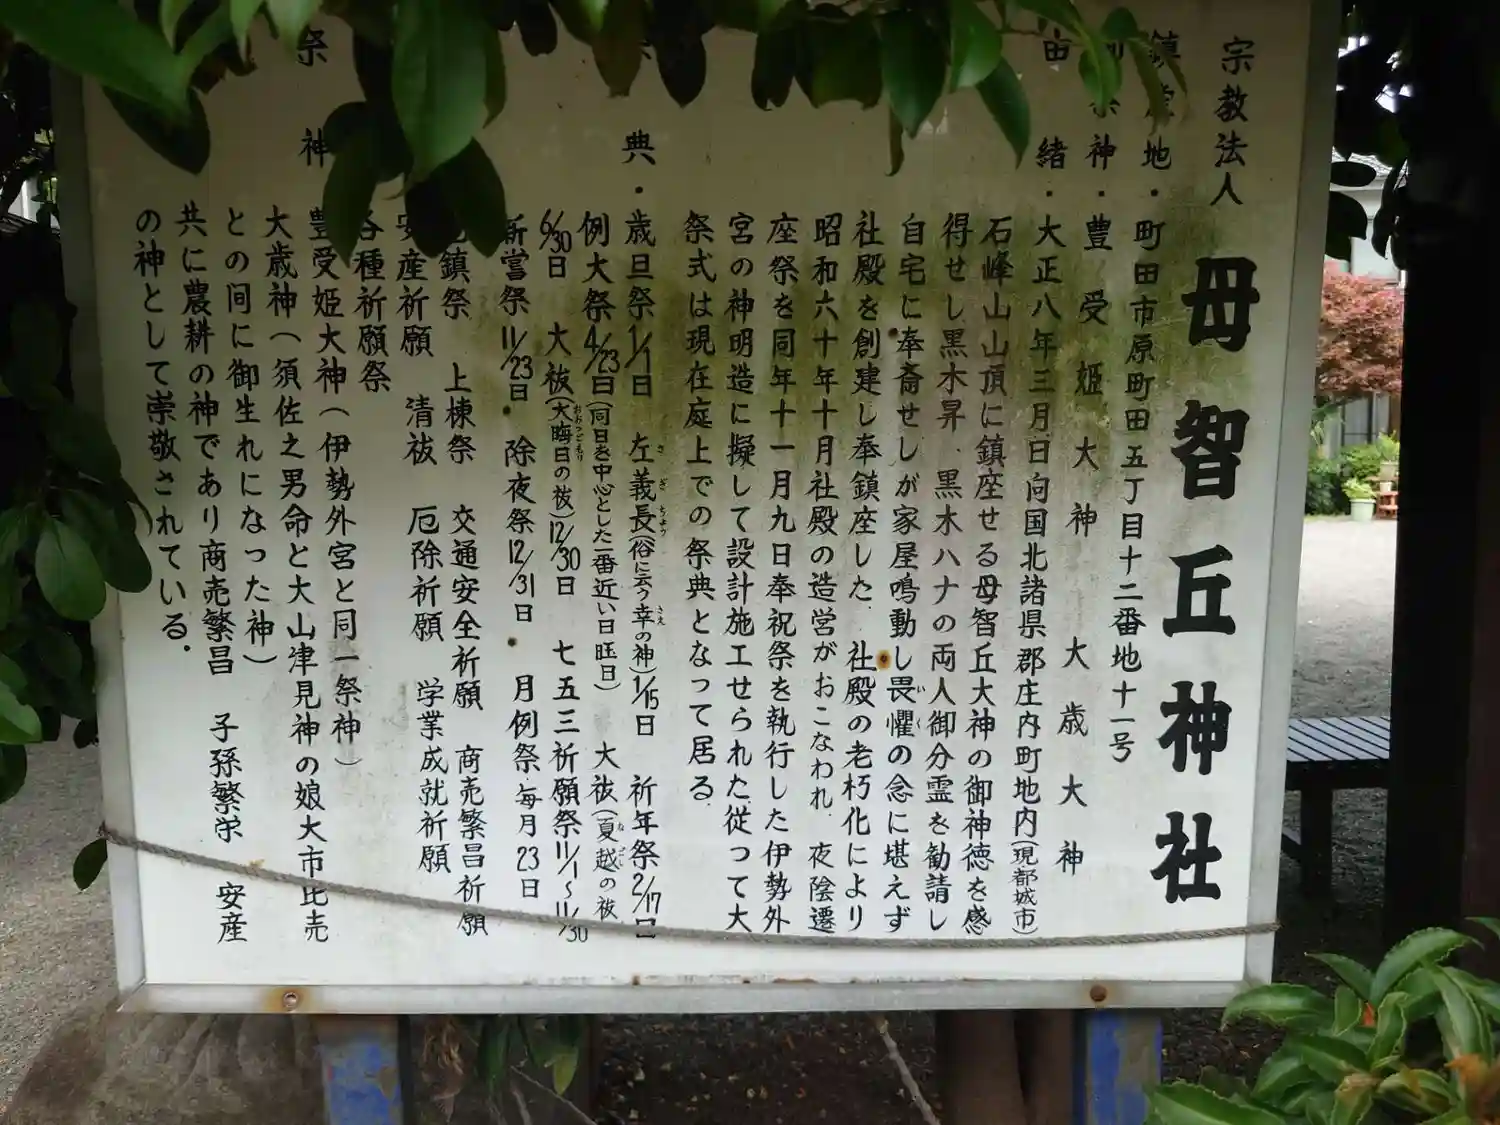 宗教法人 母智丘神社
鎮座地・町田市原町田五丁目十二番地十一号
祭神・豊受姫大神 大歳大神
由緒・大正八年三月日向国北諸県郡庄内町地内(現都城市)
石峰山山頂に鎮座せる母智丘大神の御神徳を感
得せし黒木昇、黒木ハナの両人御分霊を勧請し
自宅に奉斎せしが家屋鳴動し畏懼の念に堪えず
社殿を創建し奉鎮座した、社殿の老朽化により
昭和六十年十月社殿の造営がおこなわれ、夜陰遷
座祭を同年十一月九日奉祝祭を執行した伊勢外
宮の神明造に擬して設計施工せられた従って大
祭式は現在庭上での祭典となって居る、
典・歳旦祭1/1日 左義長(俗に云う幸の神)1/15日 祈年祭2/17日
例大祭4/23日(同日を中心とした一番近い日旺日) 大祓(夏越の祓
6/30日 大祓(大晦日の祓)12/30日 七五三祈願祭11/1〜11/30
新嘗祭11/23日 除夜祭12/31日 月例祭・毎月23日
鎮祭 上棟祭 交通安全祈願 商売繁昌祈願
安産祈願 清祓 厄除祈願 学業成就祈願
各種祈願祭
祭神 豊受姫大神(伊勢外宮と同一祭神)
大歳神(須佐之男命と大山津見神の娘大市比売
との间に御生れになった神)
共に農耕の神であり商売繁昌 子孫繁栄 安産
の神として崇敬されている.